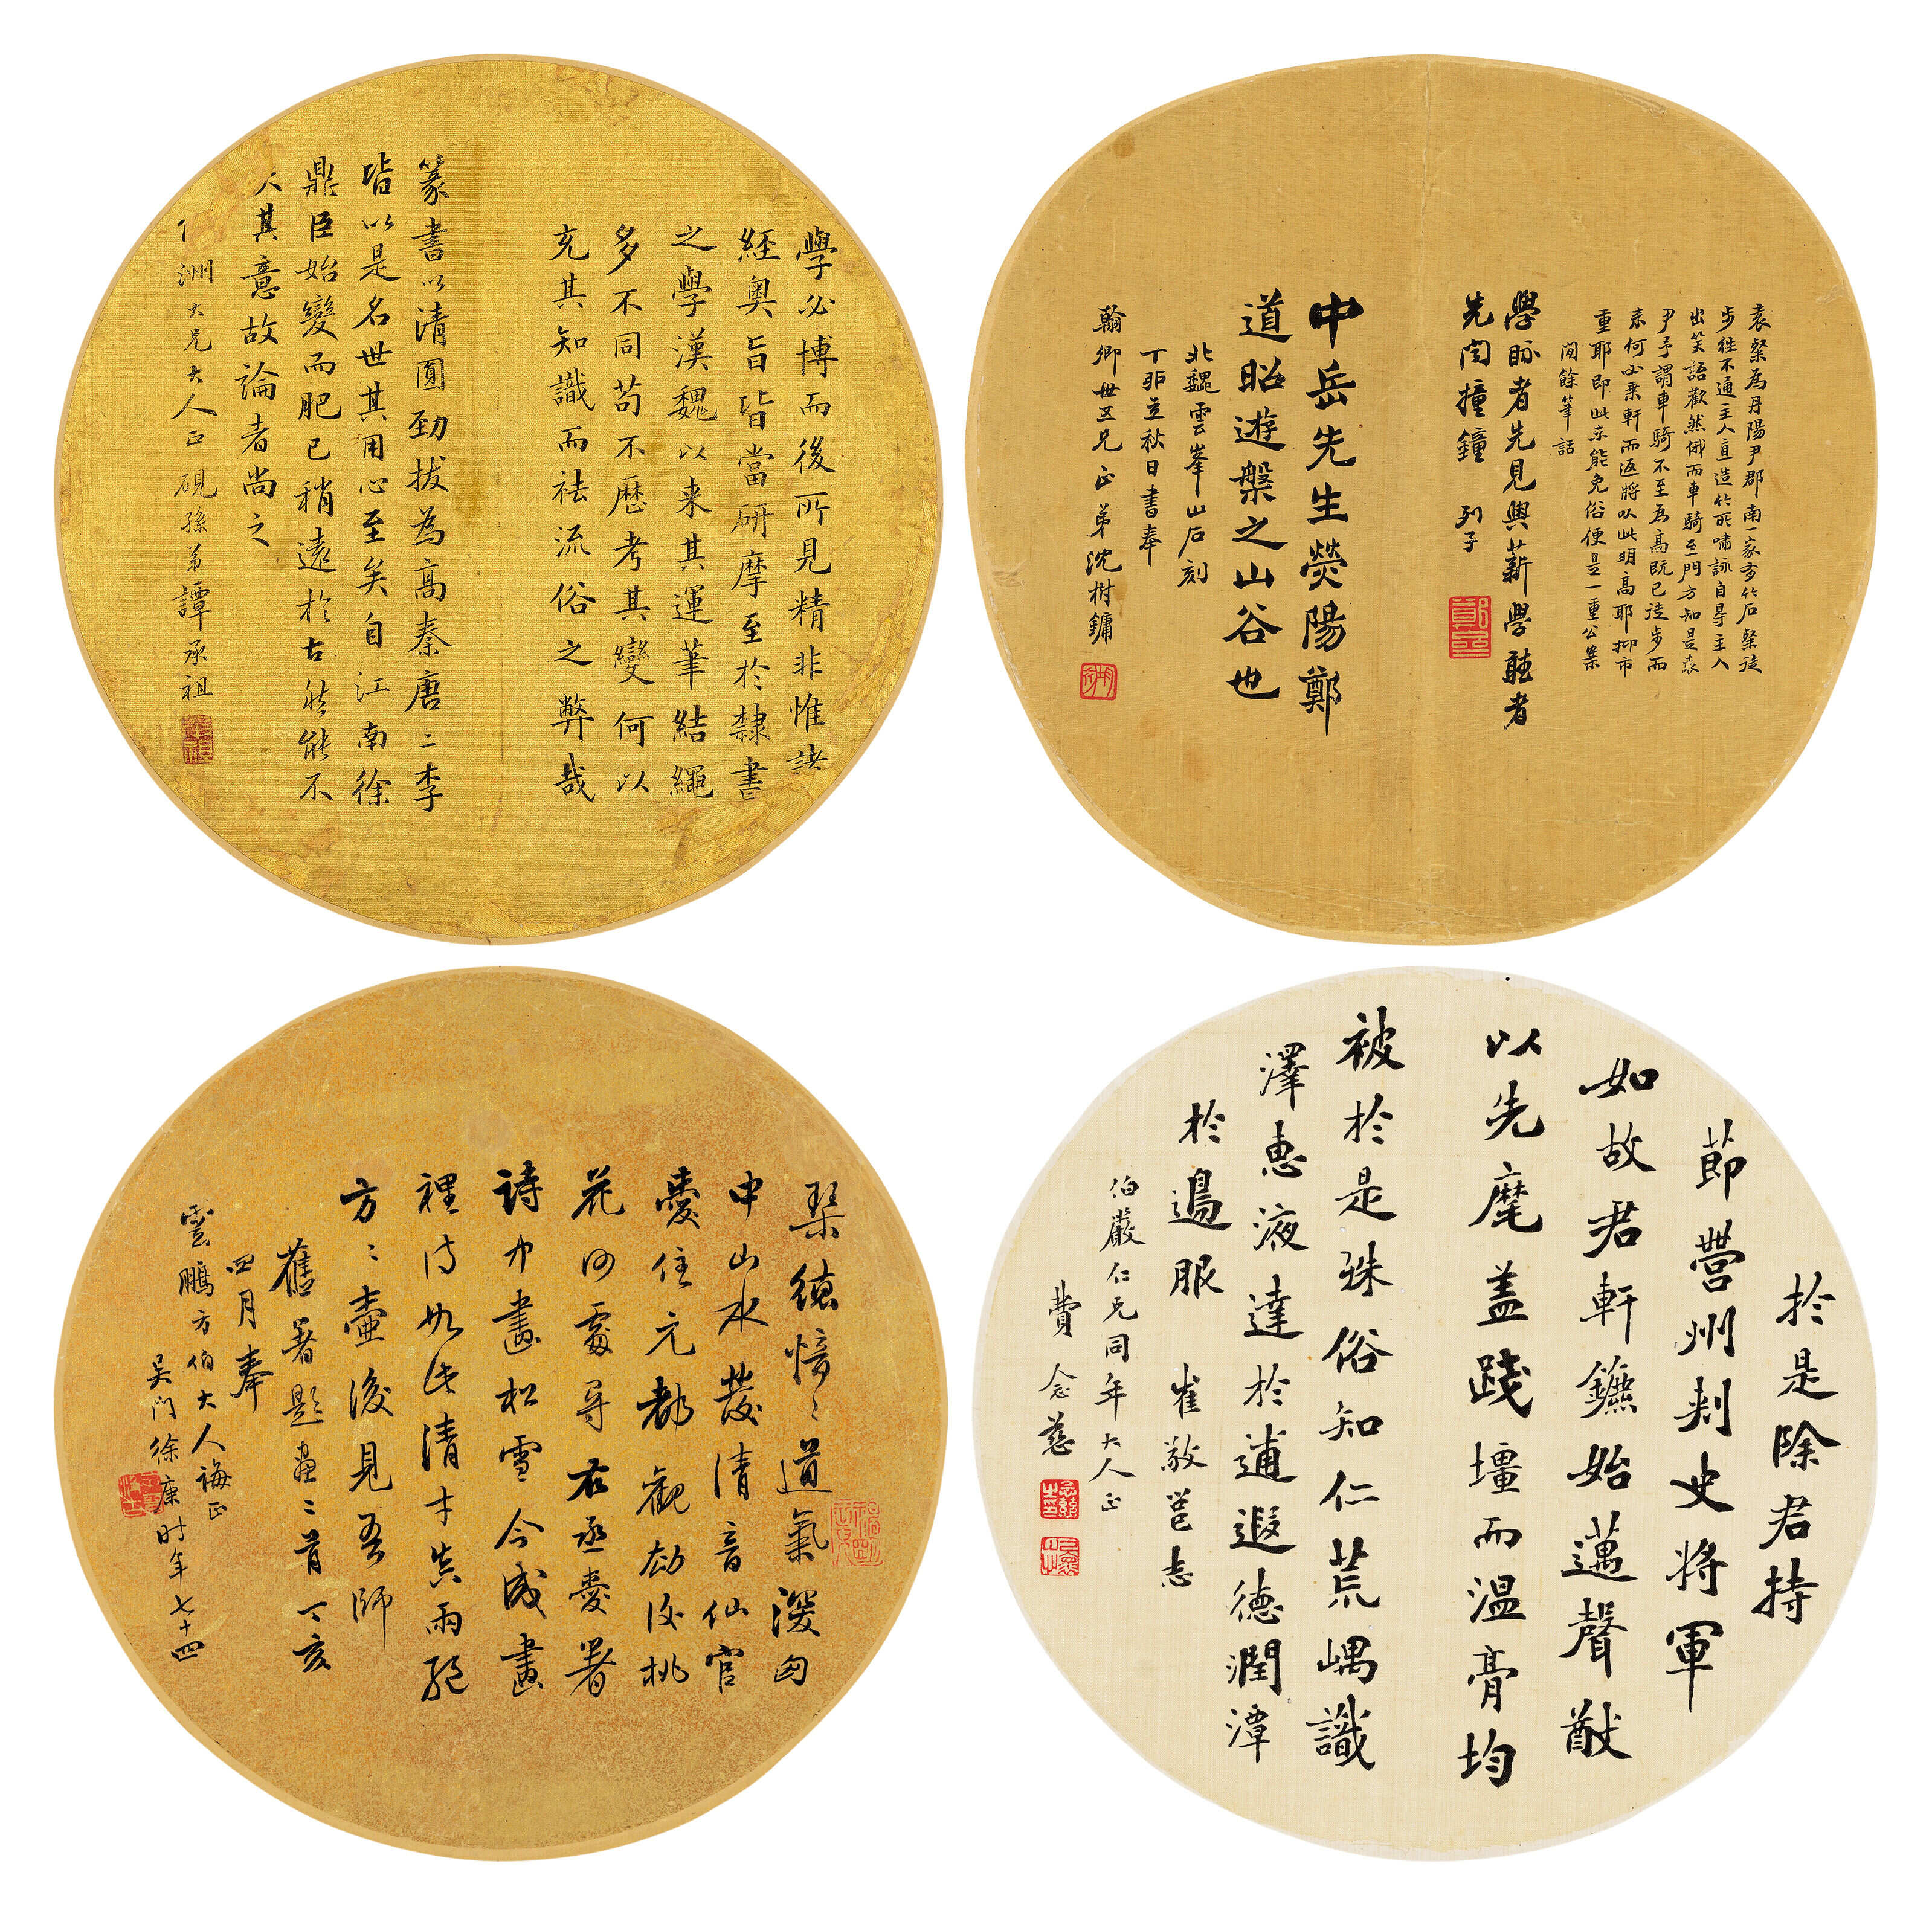 學必博而後所見精非惟諸
經奧旨皆當研摩至於隸書
之學漢魏以来其運筆結繩
多不同苟不歷考其變何以
充其知識而袪流俗之弊哉
篆書以清圓勁拔為高秦唐二李
皆以是名世其用心至矣自江南徐
鼎臣始變而肥已稍遠於古然能不
失其意故論者尚之
洲大兄大人正硯孫弟譚承祖
袁粲為丹陽尹郡南一家有竹石粲徒
步往不通主人直造竹所嘯詠自得主人
出笑語歡然俄而車騎至門方知是袁
尹予謂車騎不至為高既已徒步而
来何必乗軒而返將以此明高耶抑市
重耶即此未能免俗便是一重公案
閒餘筆話
學眎者先見輿薪學聽者
先聞撞鐘 列子
中岳先生熒陽鄭
道昭遊槃之山谷也
北魏雲峯山石刻
丁卯立秋日書奉
翰卿世五兄正弟沈樹鏞
琴德愔〻道氣深匈
中山水發清音仙官
愛住元都觀劫後桃
花何處尋 右丞愛署
詩中畫松雪今成畫
裡詩如此清才真兩絕
方〻壺後見吾師
舊署題畫二首丁亥
四月奉
雲鵬方伯大人誨正
吳門徐康時年七十四
於是除君持
節營州刺史將軍
如故君軒鑣始邁聲猷
以先麾盖踐壇而溫膏均
被於是殊俗知仁荒嵎識
澤惠液達於逋遐德潤潭
於邊服 崔敬邕志
伯嚴仁兄同年大人正
費念慈